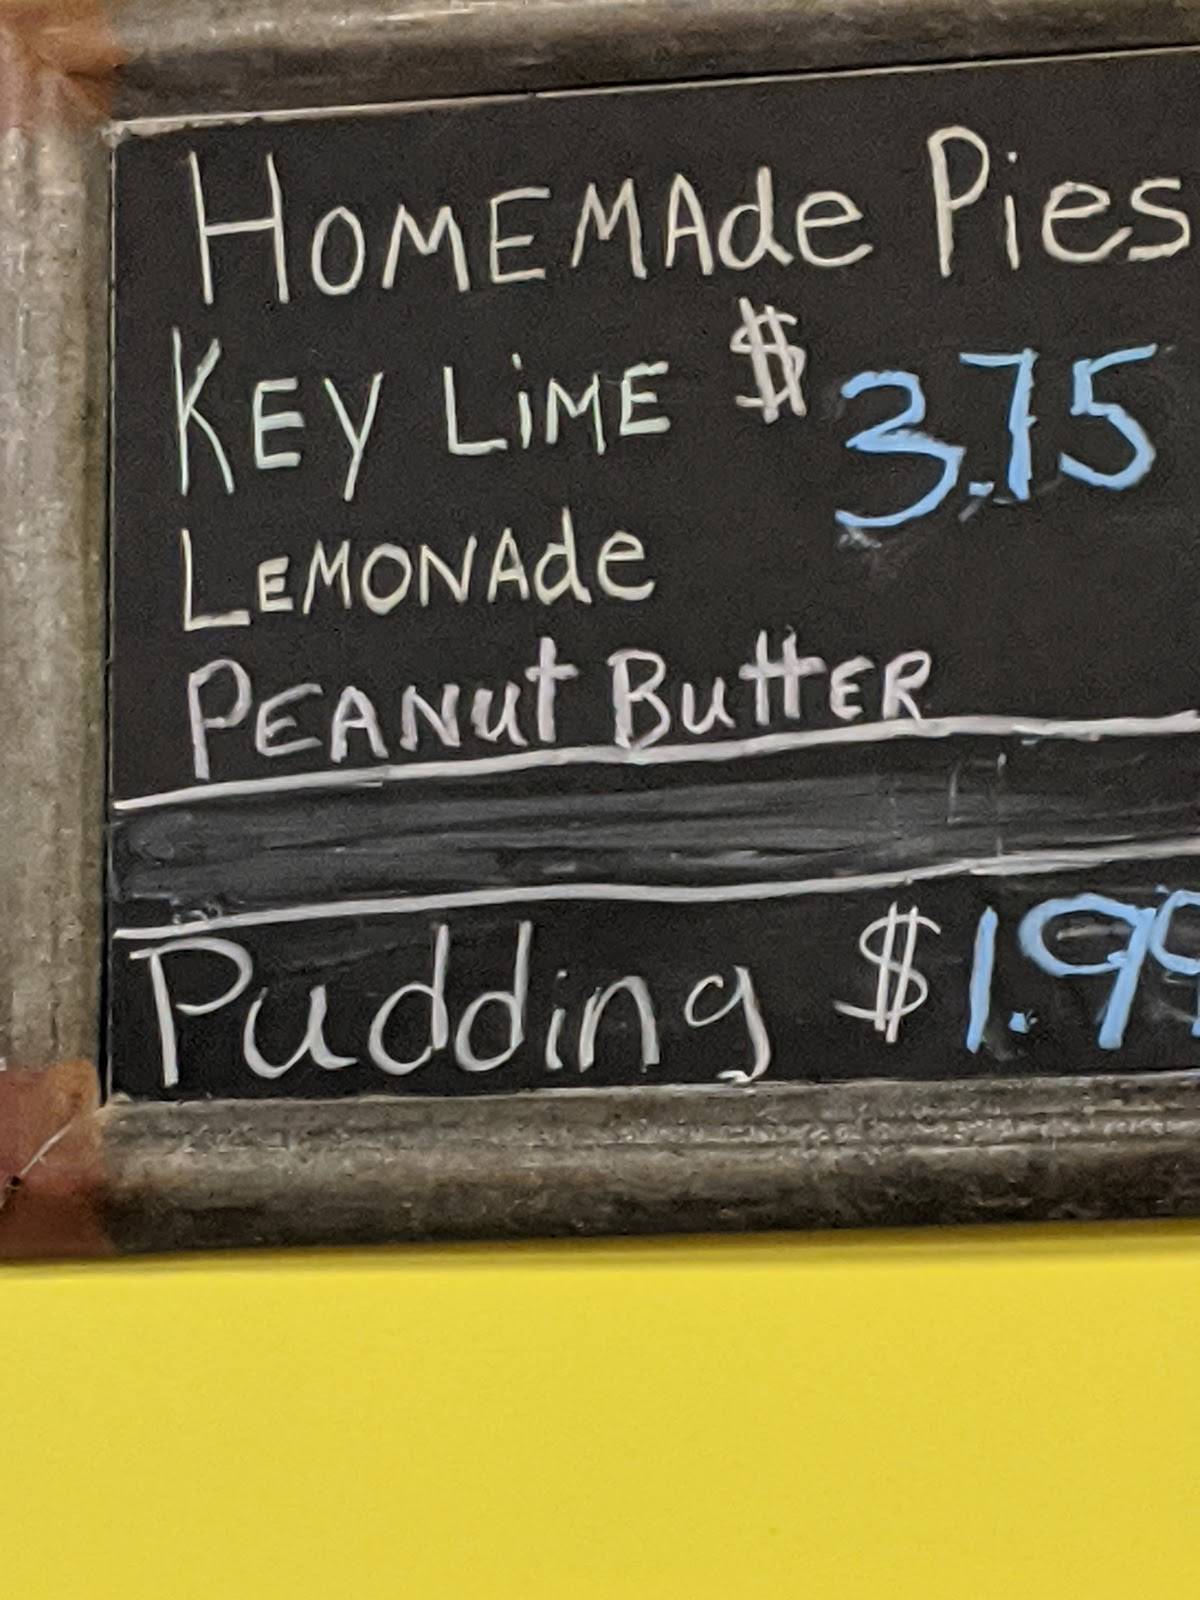 HOMEMAde Pies
KEY LiME $3.75
LEMONAde
PEANut ButtER
Pudding $1.99